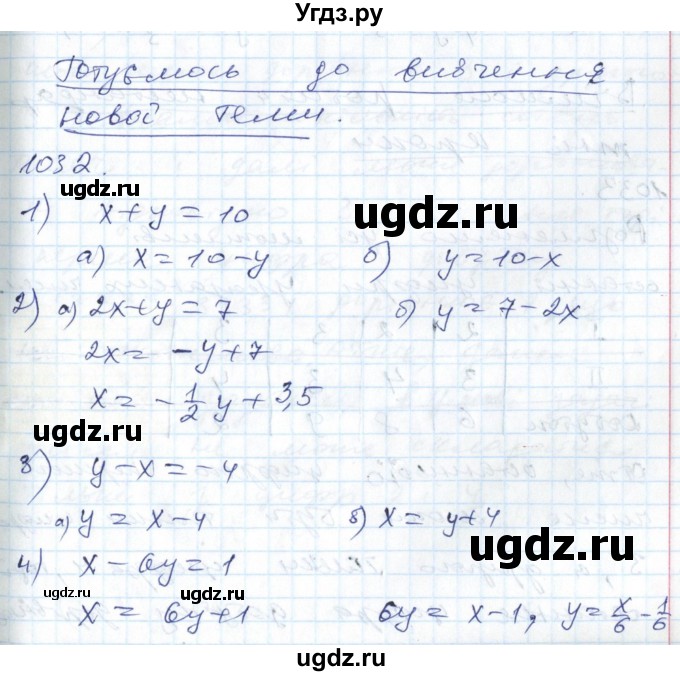 Угдз.ру
Готуємось до вивчення
нової теми.
1032.
ugdz.ru
1) x+y=10
ugdz.ru
а) x=10-y б) y=10-x
2) а) 2x+y=7 б) y=7-2x
ugdz.ru
2x=-y+7
x=-1/2y+3,5
ugdz.ru ugdz.ru
3) y-x=-4
а) y=x-4 в) x=y+4
ugdz.ru
4) x-6y=1
ugdz.ru ugdz.ru
x=6y+1 6y=x-1, y=x/6-1/6
ugdz.ru
ugdz.ru